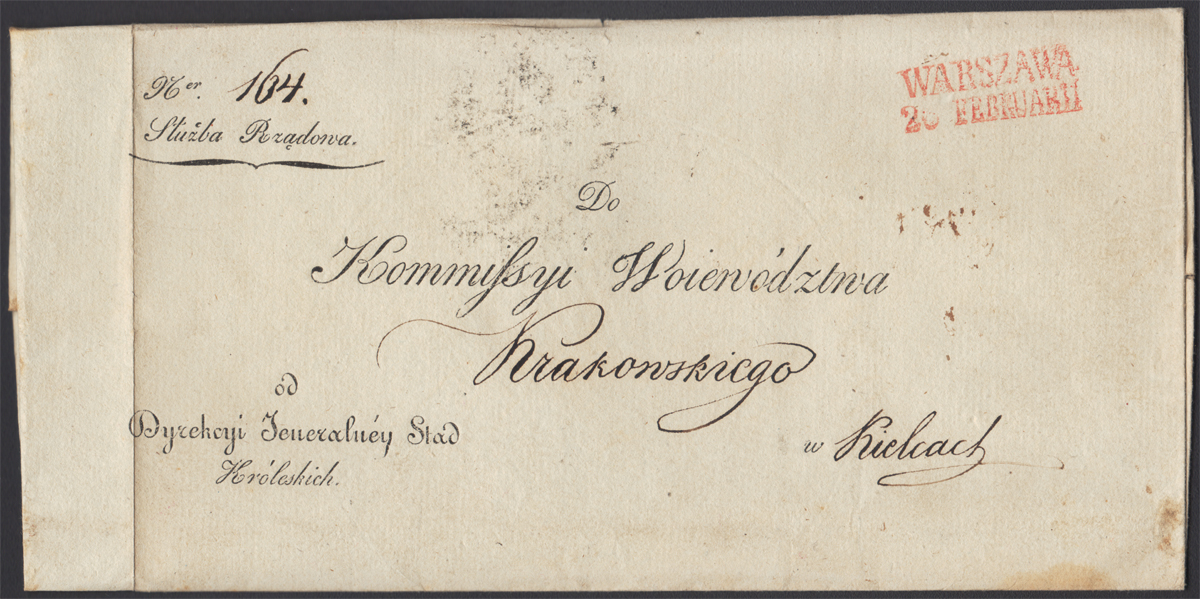 Ner. 164.
Służba Rządowa.
WARSZAWA
FEBRUARII
Do
Kommissyi Woiewództwa
Krakowskiego
od
Dyrekcyi Jeneralnéy Stad
Króleskich.
w Kielcach